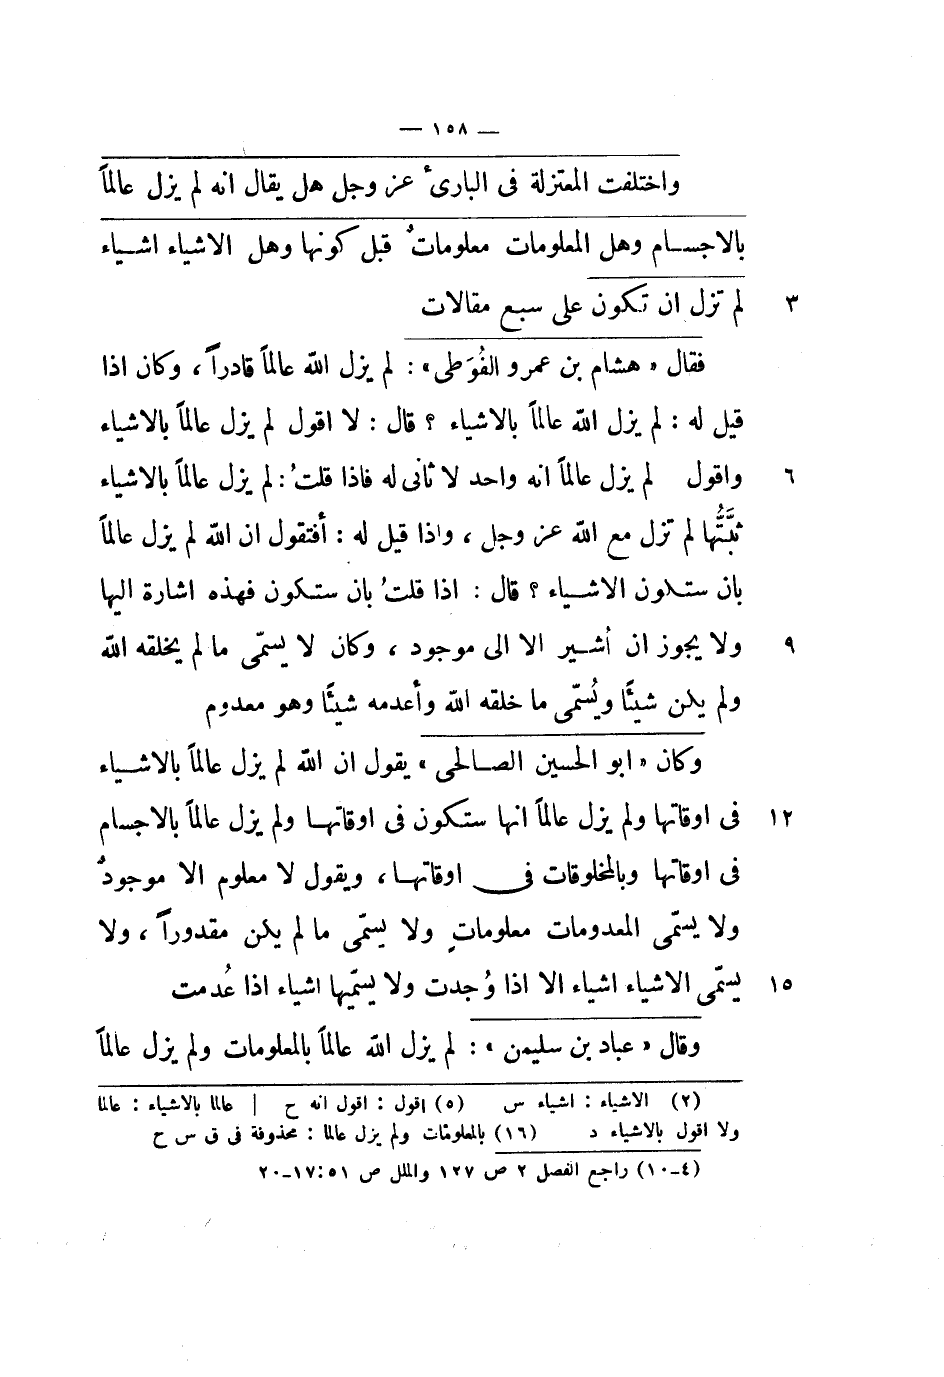 — ١٥٨ —
واختلفت المعتزلة فى البارئ عز وجل هل يقال انه لم يزل عالماً
بالاجسام وهل المعلومات معلوماتٌ قبل كونها وهل الاشياء اشياء
٣ لم تزل ان تكون على سبع مقالات
فقال «هشام بن عمرو الفُوَطى» : لم يزل الله عالماً قادراً ، وكان اذا
قيل له : لم يزل الله عالماً بالاشياء ؟ قال : لا اقول لم يزل عالماً بالاشياء
٦ واقول لم يزل عالماً انه واحد لا ثانى له فاذا قلتُ : لم يزل عالماً بالاشياء
ثبَّتُّها لم تزل مع الله عز وجل ، واذا قيل له : أفتقول ان الله لم يزل عالماً
بان ستكون الاشياء ؟ قال : اذا قلتُ بان ستكون فهذه اشارة اليها
٩ ولا يجوز ان أُشير الا الى موجود ، وكان لا يسمّى ما لم يخلقه الله
ولم يكن شيئًا ويُسمّى ما خلقه الله وأعدمه شيئًا وهو معدوم
وكان «ابو الحسين الصالحى» يقول ان الله لم يزل عالماً بالاشياء
١٢ فى اوقاتها ولم يزل عالماً انها ستكون فى اوقاتها ولم يزل عالماً بالاجسام
فى اوقاتها وبالمخلوقات فى اوقاتها ، ويقول لا معلوم الا موجودٌ
ولا يسمّى المعدومات معلوماتٍ ولا يسمّى ما لم يكن مقدوراً ، ولا
١٥ يسمّى الاشياء اشياء الا اذا وُجدت ولا يسمّيها اشياء اذا عُدمت
وقال «عباد بن سليمن» : لم يزل الله عالماً بالمعلومات ولم يزل عالماً
(٢) الاشياء : اشياء س (٥) اقول : اقول انه ح | عالما بالاشياء : عالما
ولا اقول بالاشياء د (١٦) بالمعلومات ولم يزل عالما : محذوفة فى ق س ح
(٤-١٠) راجع الفصل ٢ ص ١٢٧ والملل ص ٥١:١٧-٢٠